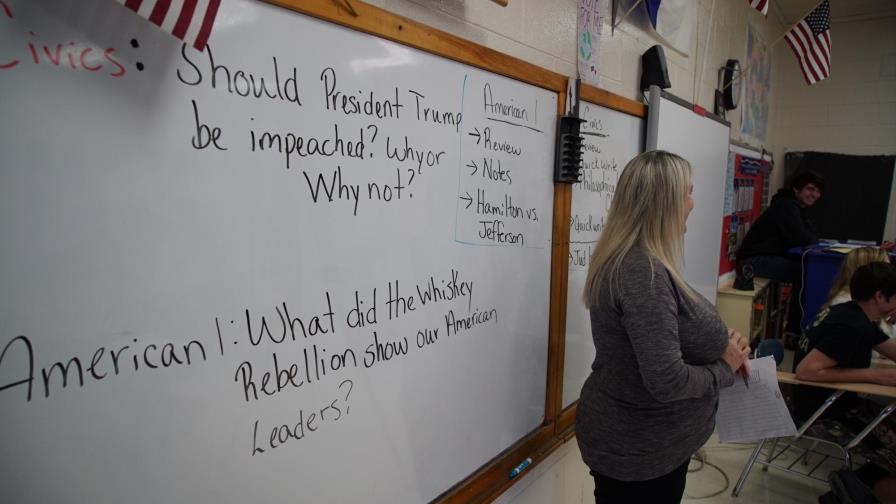 Civics:
Should President Trump
be impeached? Why or
Why not?
American 1
→ Review
→ Notes
→ Hamilton vs.
Jefferson
American 1: What did the Whiskey
Rebellion show our American
Leaders?
Civics
Review
Quick Write
Quick write
VOTE FOR ME